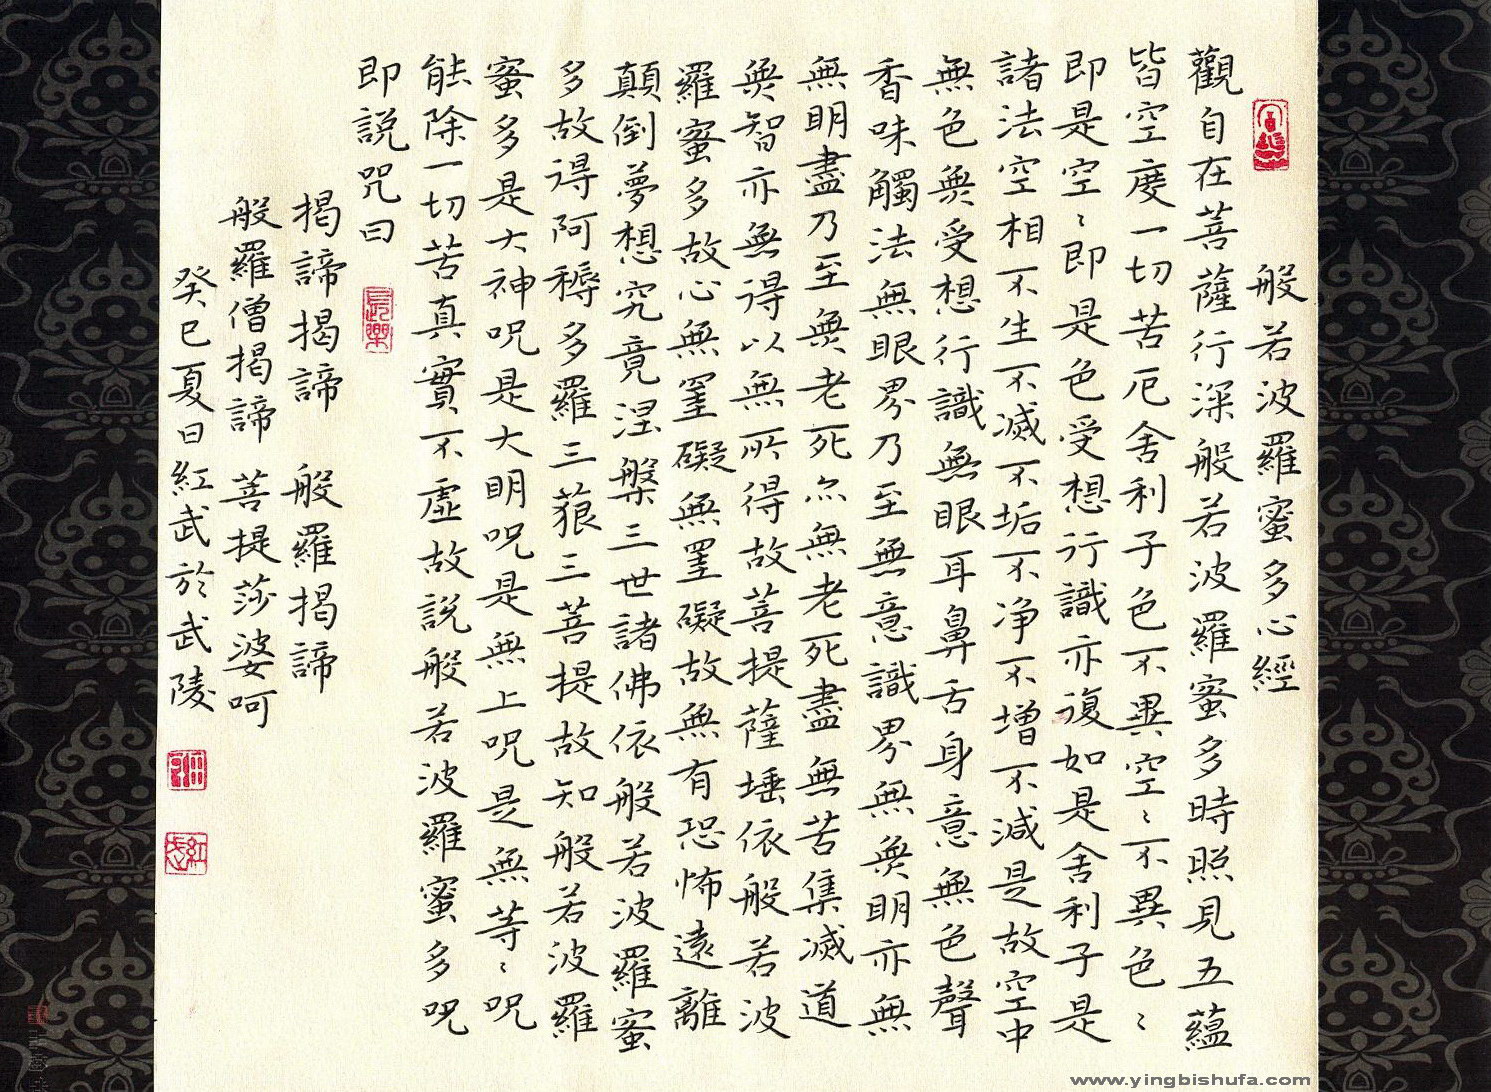 般若波羅蜜多心經
觀自在菩薩行深般若波羅蜜多時照見五蘊
皆空度一切苦厄舍利子色不異空〻不異色〻
即是空〻即是色受想行識亦復如是舍利子是
諸法空相不生不滅不垢不净不增不減是故空中
無色無受想行識無眼耳鼻舌身意無色聲
香味觸法無眼界乃至無意識界無無明亦無
無明盡乃至無老死亦無老死盡無苦集滅道
無智亦無得以無所得故菩提薩埵依般若波
羅蜜多故心無罣礙無罣礙故無有恐怖遠離
顛倒夢想究竟涅槃三世諸佛依般若波羅蜜
多故得阿耨多羅三藐三菩提故知般若波羅
蜜多是大神呪是大明呪是無上呪是無等〻呪
能除一切苦真實不虛故説般若波羅蜜多呪
即説咒曰
長樂
揭諦揭諦 般羅揭諦
般羅僧揭諦 菩提莎婆呵
癸巳夏日紅武於武陵
紅武
www.yingbishufa.com